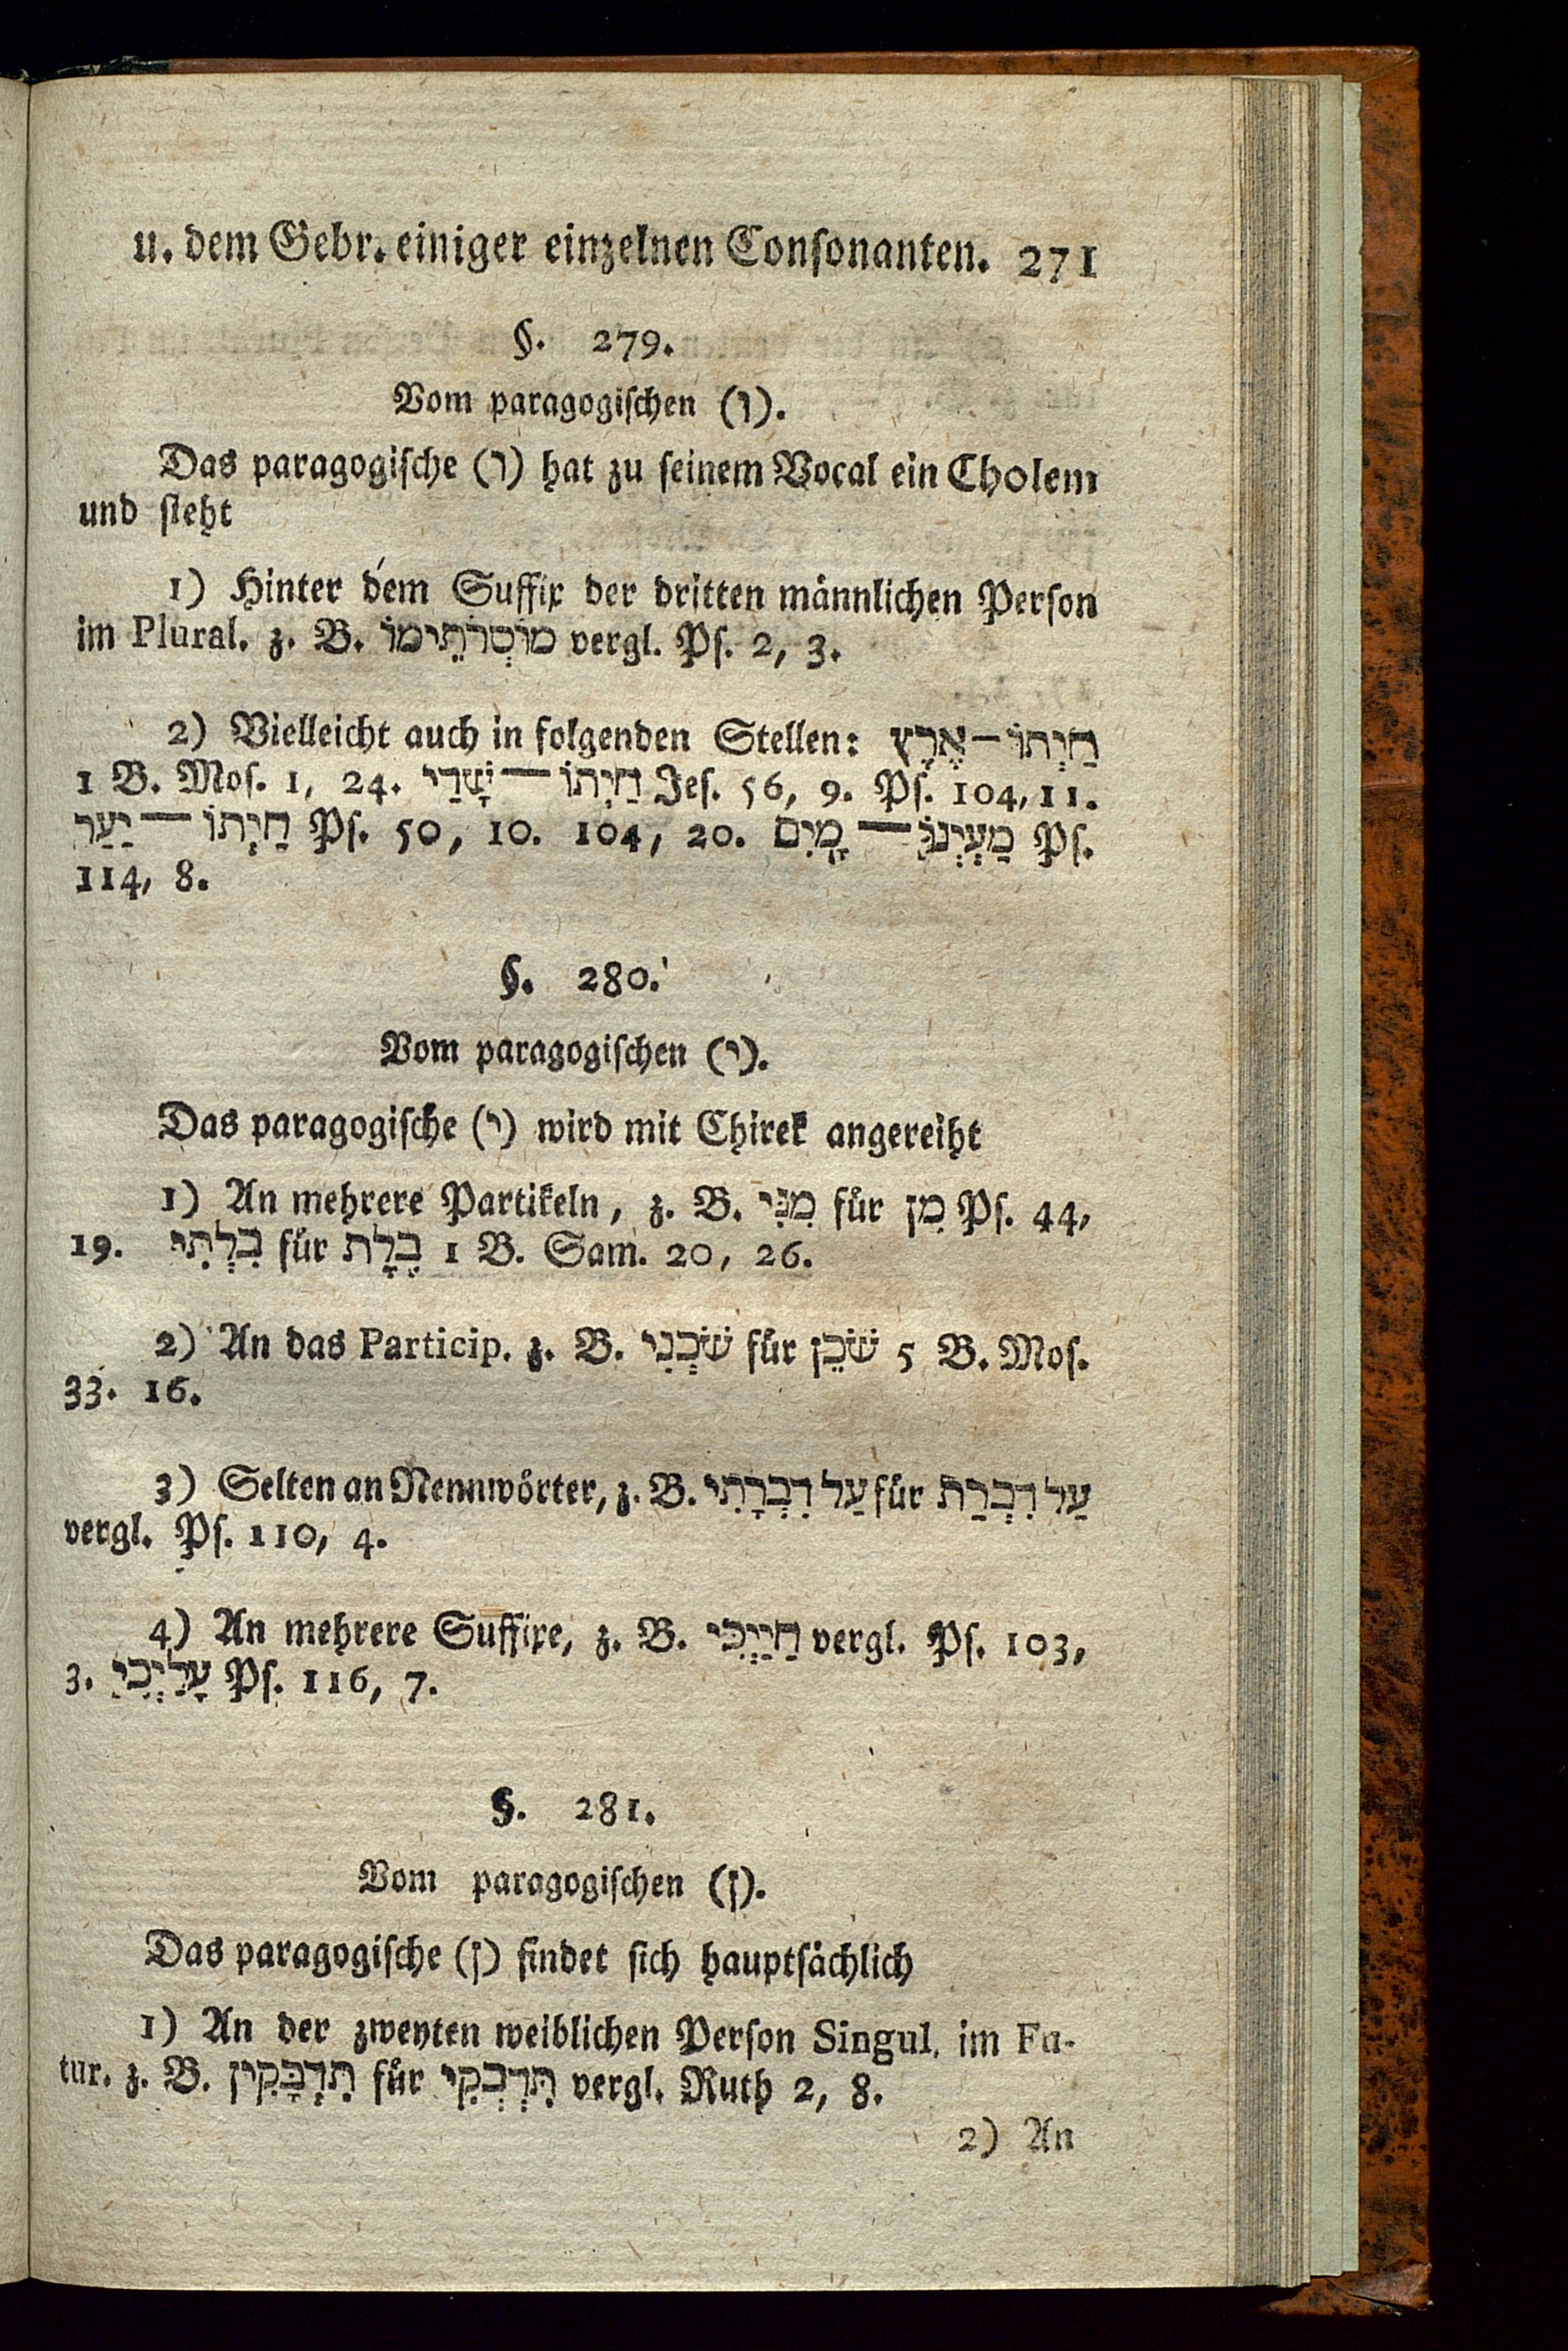 u. dem Gebr. einiger einzelnen Conſonanten. 271
§. 279.
Vom paragogiſchen (ו).
Das paragogiſche (ו) hat zu ſeinem Vocal ein Cholem
und ſteht
1) Hinter dem Suffix der dritten männlichen Perſon
im Plural. z. B. מוֹסְרֹתֵימוֹ vergl. Pſ. 2, 3.
2) Vielleicht auch in folgenden Stellen: חַיְתוֹ—אֶרֶץ
1 B. Moſ. 1, 24. חַיְתוֹ—שָׂדַי Jeſ. 56, 9. Pſ. 104, 11.
חַיְתוֹ—יַעַר Pſ. 50, 10. 104, 20. מַעְיְנוֹ—מָיִם Pſ.
114, 8.
§. 280.
Vom paragogiſchen (י).
Das paragogiſche (י) wird mit Chirek angereiht
1) An mehrere Partikeln, z. B. מִנִּי für מִן Pſ. 44,
19. בִּלְתִּי für בֶלֶת 1 B. Sam. 20, 26.
2) An das Particip. z. B. שֹׁכְנִי für שֹׁכֵן 5 B. Moſ.
33. 16.
3) Selten an Nennwörter, z. B. עַל דִּבְרָתִי für עַל דִּבְרַת
vergl. Pſ. 110, 4.
4) An mehrere Suffixe, z. B. חַיָּיְכִי vergl. Pſ. 103,
3. עָלָיְכִי Pſ. 116, 7.
§. 281.
Vom paragogiſchen (ן).
Das paragogiſche (ן) findet ſich hauptſächlich
1) An der zweyten weiblichen Perſon Singul. im Fu-
tur. z. B. תִּדְבָּקִין für תִּדְבְּקִי vergl. Ruth 2, 8.
2) An